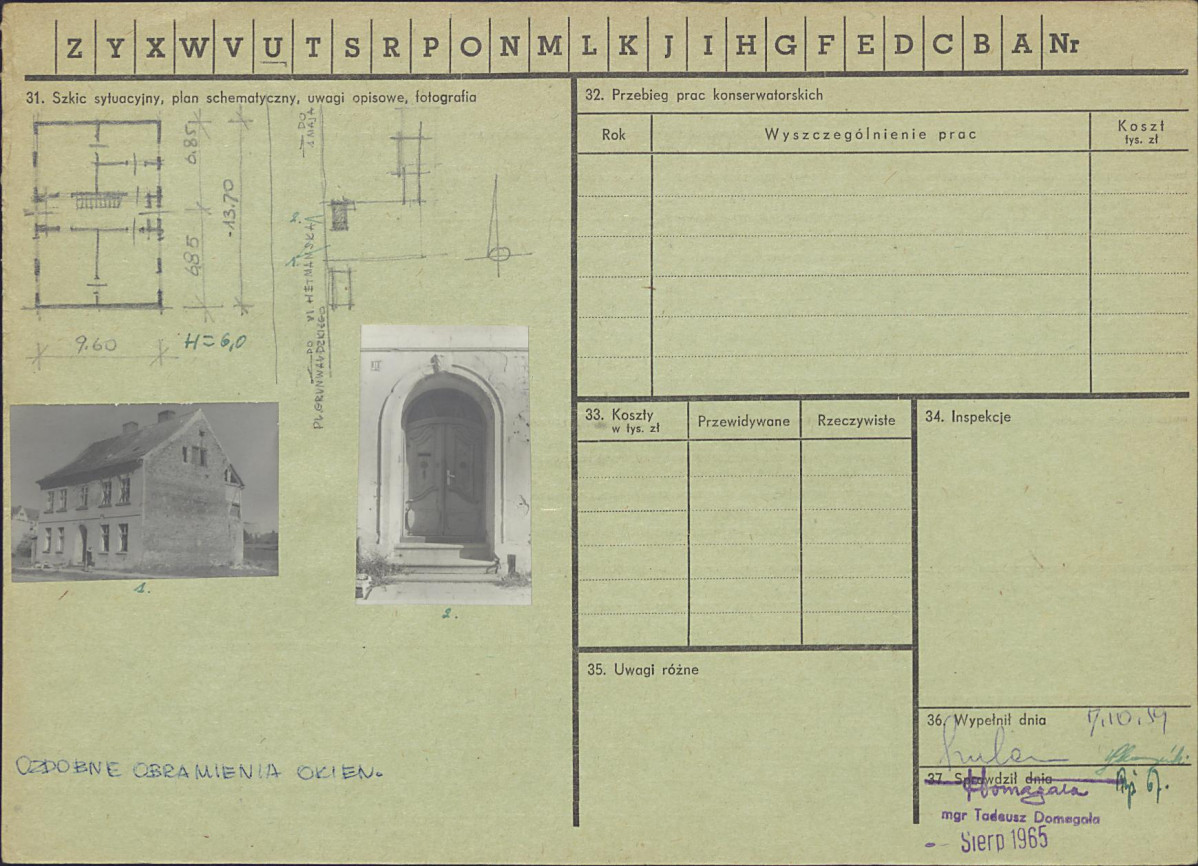 Z Y X W V U T S R P O N M L K J I H G F E D C B A Nr
31. Szkic sytuacyjny, plan schematyczny, uwagi opisowe, fotografia
6.85
6,85
13.70
9.60
H=6,0
DO
1 MAJA
UL. HETMAŃSKA
DO
PL. GRUNWALDZKIEGO
2.
1.
III
1.
2.
OZDOBNE OBRAMIENIA OKIEN.
32. Przebieg prac konserwatorskich
Rok
Wyszczególnienie prac
Koszt
tys. zł
33. Koszty
w tys. zł
Przewidywane
Rzeczywiste
34. Inspekcje
35. Uwagi różne
36. Wypełnił dnia 7.10.59
37. Sprawdził dnia
Domagała
mgr Tadeusz Domagała
Sierp 1965